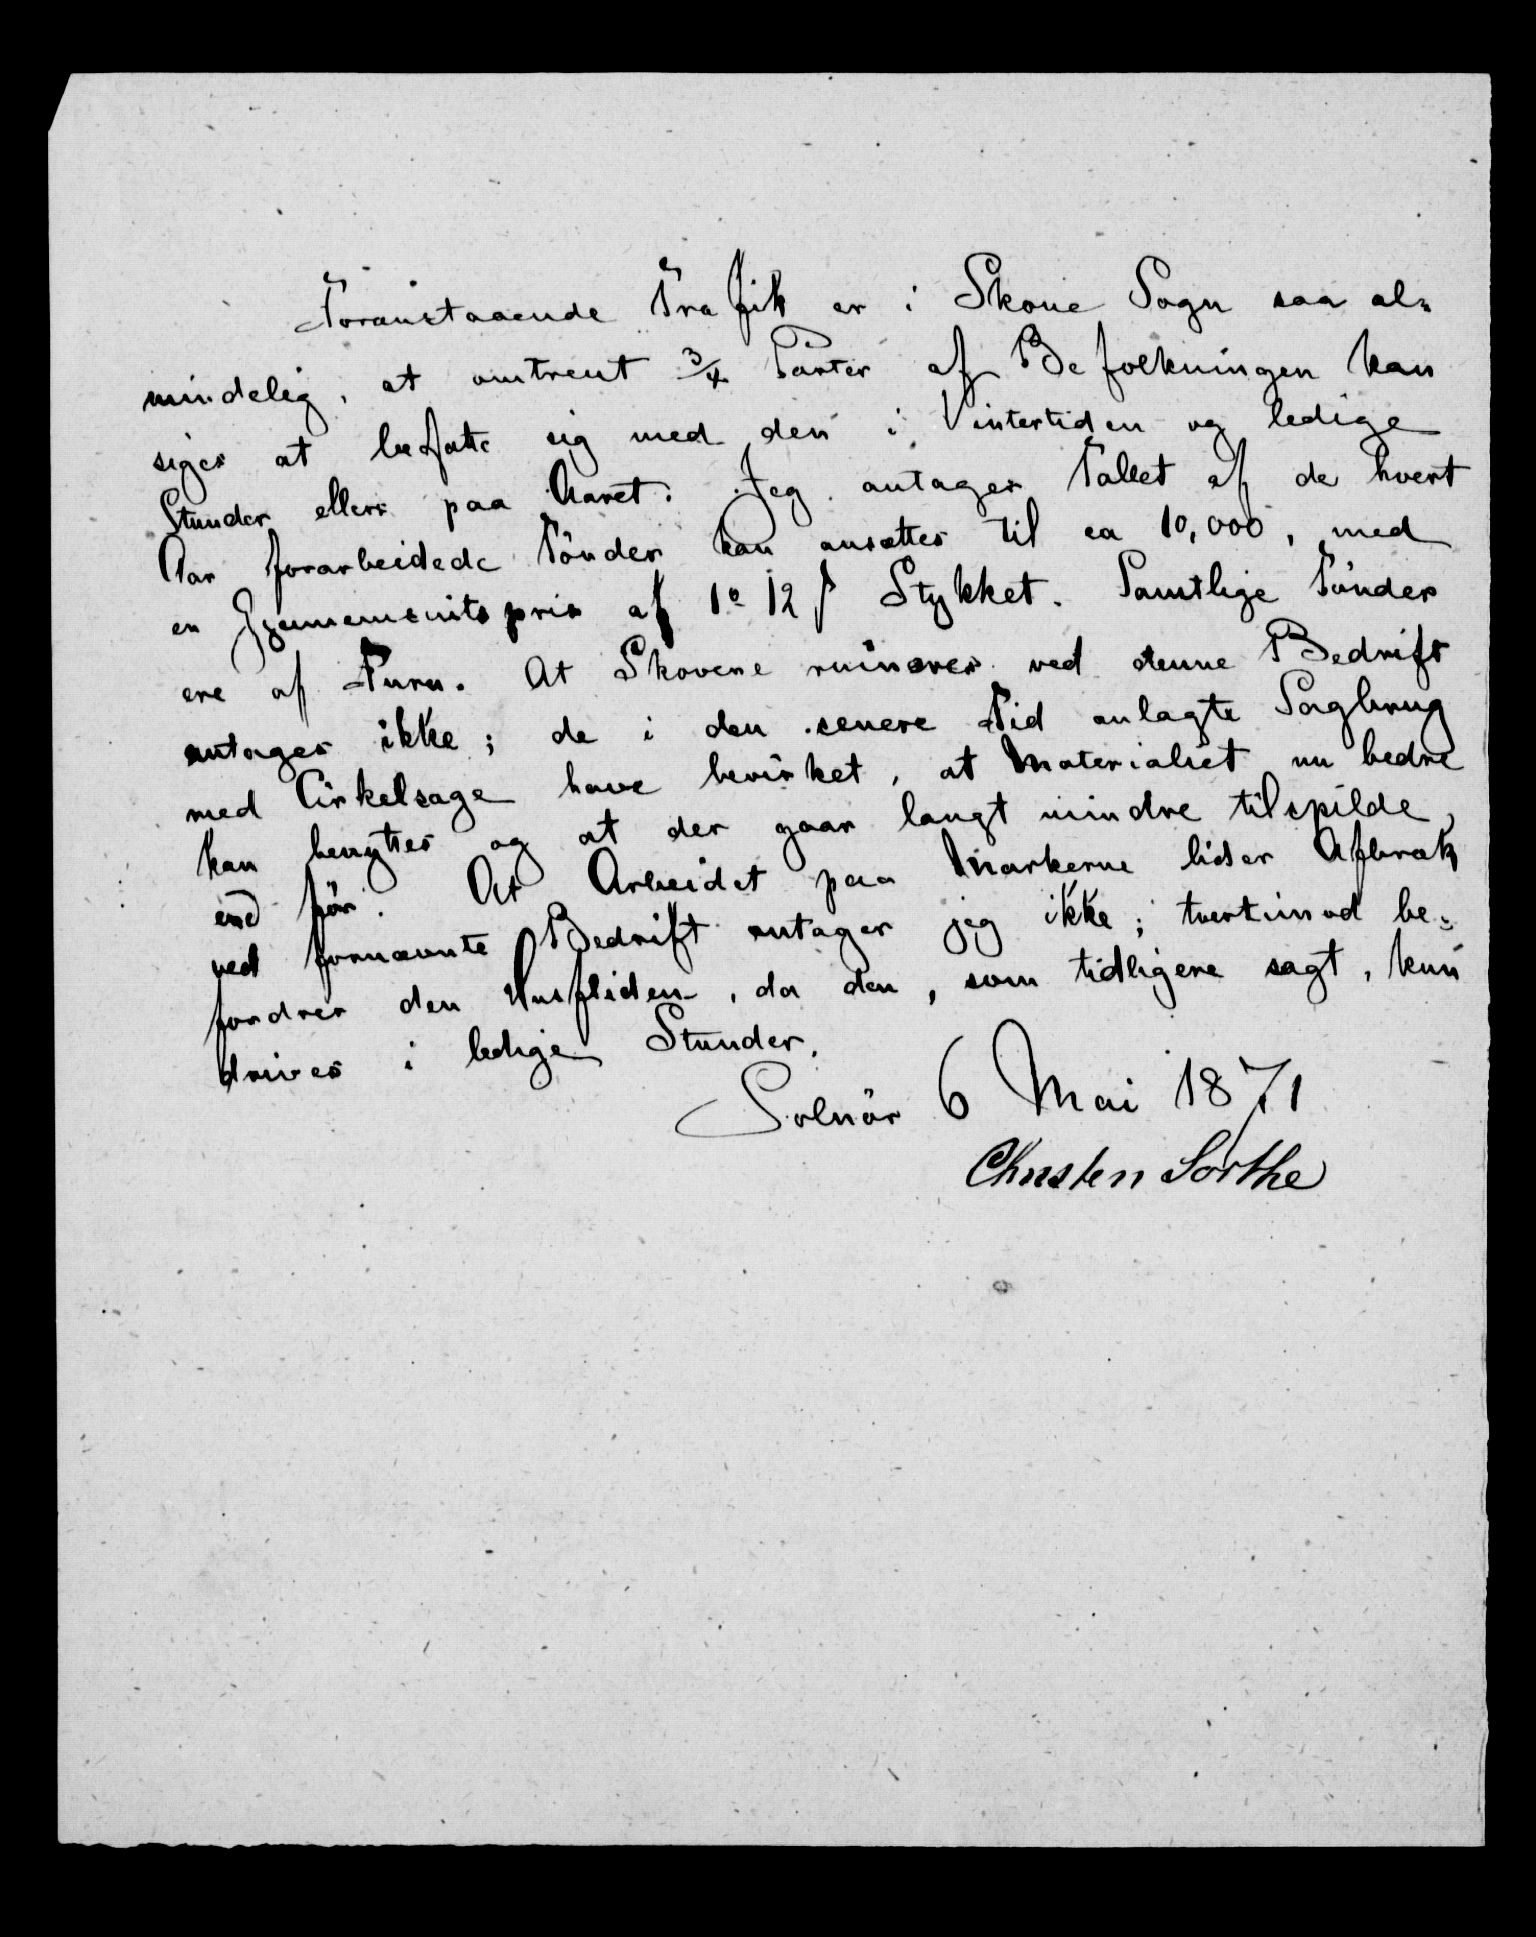 Foranstaaende Trafik er i Skoue Sogn saa al=
mindelig, at omtrent 3/4 Parter af Befolkningen kan
siges at befatte sig med den i Vintertiden og ledige
Stunder ellers paa Aaret. Jeg antager Tallet af de hvert
Aar forarbeidede Tönder kan ansættes til ca 10,000, med
en Gjennemsnitspris af 12 ſ Stykket. Samtlige Tönder
ere af Furu. At Skovene ruineres ved denne Bedrift
antages ikke; de i den senere Tid anlagte Sagbrug
med Cirkelsage have bevirket, at Materialiet nu bedre
kan benyttes og at der gaar langt mindre tilspilde,
end för. At Arbeidet paa Markerne lider Afbræk
ved fornævnte Bedrift antager jeg ikke; tvertimod be=
fordrer den Husfliden, da den, som tidligere sagt, kun
drives i ledige Stunder.
Solnör 6 Mai 1871
Christen Lorthe